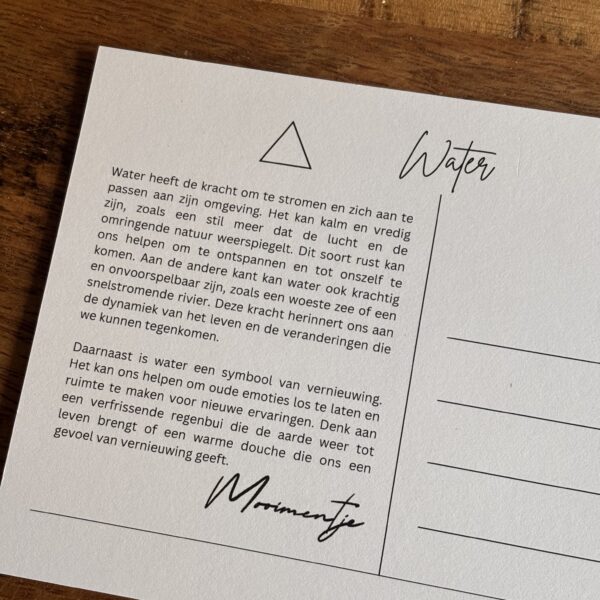 Water
Water heeft de kracht om te stromen en zich aan te
passen aan zijn omgeving. Het kan kalm en vredig
zijn, zoals een stil meer dat de lucht en de
omringende natuur weerspiegelt. Dit soort rust kan
ons helpen om te ontspannen en tot onszelf te
komen. Aan de andere kant kan water ook krachtig
en onvoorspelbaar zijn, zoals een woeste zee of een
snelstromende rivier. Deze kracht herinnert ons aan
de dynamiek van het leven en de veranderingen die
we kunnen tegenkomen.
Daarnaast is water een symbool van vernieuwing.
Het kan ons helpen om oude emoties los te laten en
ruimte te maken voor nieuwe ervaringen. Denk aan
een verfrissende regenbui die de aarde weer tot
leven brengt of een warme douche die ons een
gevoel van vernieuwing geeft.
Mooimentje